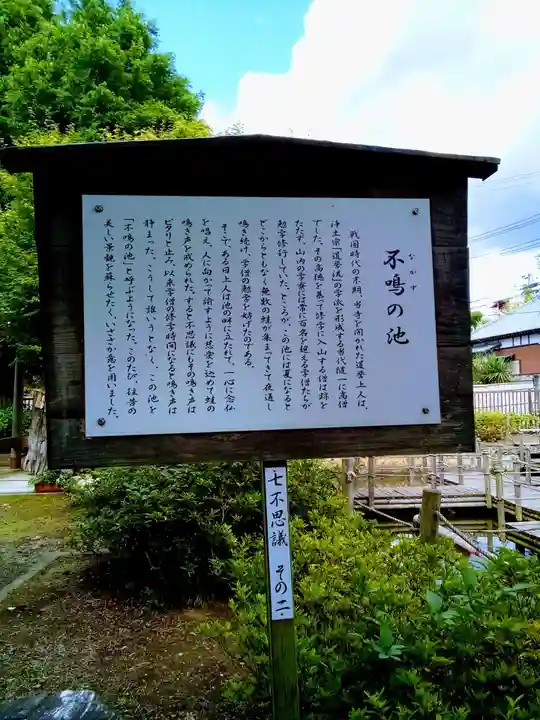 不鳴の池
なかず
戦国時代の末期、当寺を開かれた道誉上人は、
浄土宗「道誉流」の学派を形成する当代随一に高僧
でした。その高徳を慕って修学に入山する僧は跡を
たたず、山内の学寮には常に百名を超える学僧たちが
勉学修行していた。ところが、この池には夏になると
どこからともなく無数の蛙が集ってきて夜通し
鳴き続け、学僧の勉学を妨げたのである。
そこで、ある日上人は池の畔に立たれて、一心に念仏
を唱え、人に向かって諭すように慈愛を込めて蛙の
鳴き声を戒められた。すると不思議にもその鳴き声は
ピタリと止み、以来学僧の修学時間になると鳴き声は
静まった。こうして誰いうとなく、この池を
「不鳴の池」と呼ぶようになった。このたび、往昔の
美しい景観を蘇らせたく、いささか意を用いました。
七不思議 その二